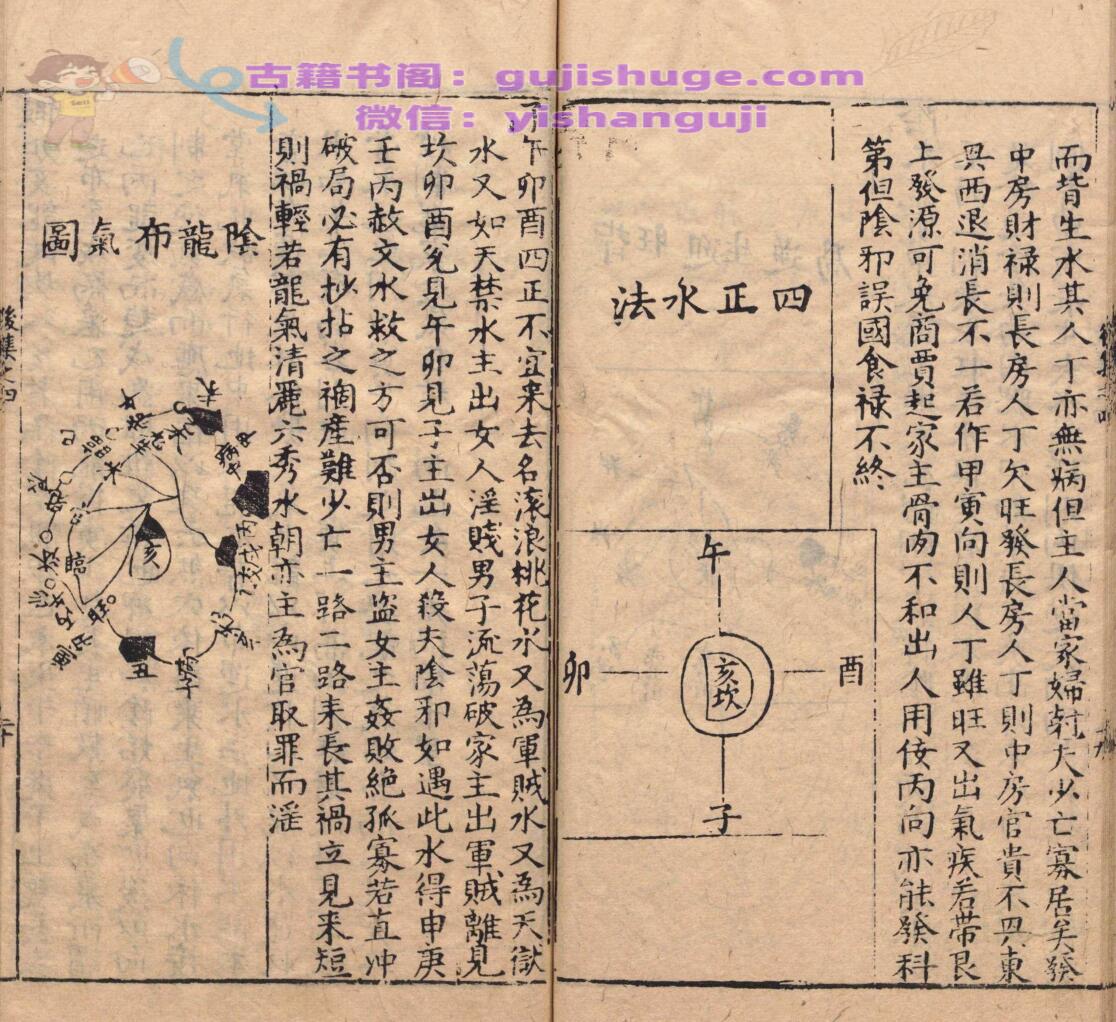 古籍书阁：gujishuge.com
微信：yishanguji
而皆生水其人丁亦無病但主人當家婦尅夫少亡寡居矣發
中房財禄則長房人丁欠旺發長房人丁則中房官貴不巽東
巽西退消長不一若作甲寅向則人丁雖旺又出氣疾若帶艮
上發源可免商賈起家主骨肉不和出人用侫丙向亦能發科
第但陰邪誤國食禄不終
四正水法
午
卯
亥坎
酉
子
午卯酉四正不宜来去名滚浪桃花水又為軍賊水又為天獄
水又如天禁水主出女人淫賤男子流蕩破家主出軍賊離見
坎卯酉見午卯見子主出女人殺夫陰邪如遇此水得申庚
壬丙赦文水救之方可否則男主盗女主姦敗絶孤寡若直冲
破局必有抄拈之禍産難少亡一路二路来長其禍立見来短
則禍輕若龍氣清麗六秀水朝亦主為官取罪而淫
陰龍布氣圖
亥
丑
臨
旺
病